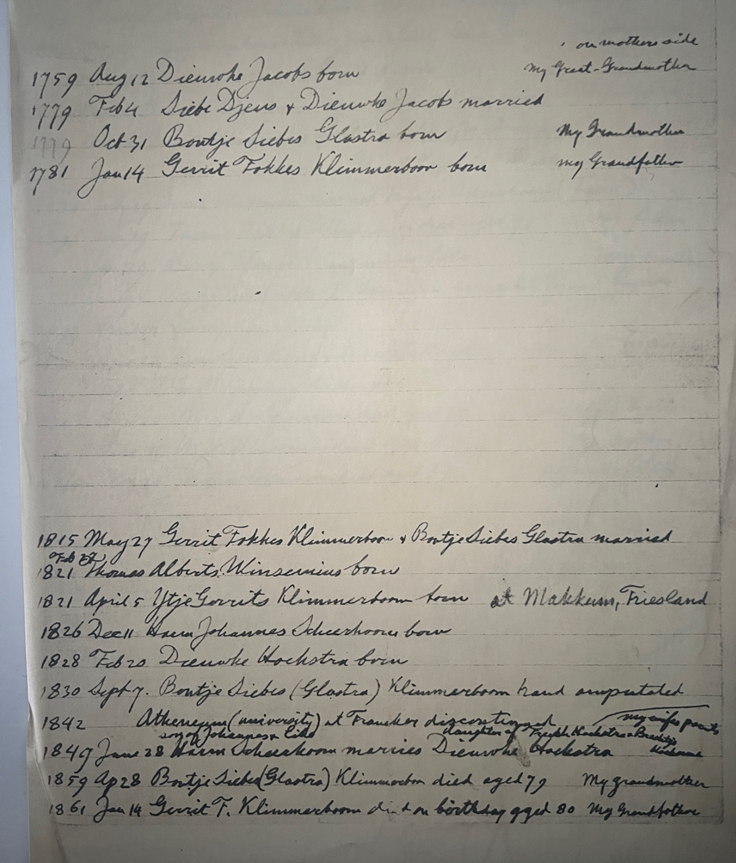 on mothers side
1759 Aug 12 Dieuwke Jacobs born my Great-Grandmother
1779 Feb 4 Siebe Djeus & Dieuwke Jacobs married
1779 Oct 31 Bontje Siebes Glastra born My Grandmother
1781 Jan 14 Gerrit Fokkes Klimmerboom born my Grandfather
1815 May 27 Gerrit Fokkes Klimmerboom & Bontje Siebes Glastra married
Feb
1821 Thomas Alberts Winsemius born
1821 April 5 Ytje Gerrits Klimmerboom born at Makkum, Friesland
1826 Dec 11 Harm Johannes Scheerhoorn born
1828 Feb 20 Dieuwke Hoekstra born
1830 Sept 7. Bontje Siebes (Glastra) Klimmerboom hand amputated
1842 Atheneum (university) at Franeker discontinued my wifes parents
son of Johannes & daughter of Hoekstra &
1849 June 28 Harm Scheerhoorn marries Dieuwke Hoekstra
1859 Ap 28 Bontje Siebes (Glastra) Klimmerboom died aged 79 My grandmother
1861 Jan 14 Gerrit F. Klimmerboom died on birthday aged 80 My Grandfather